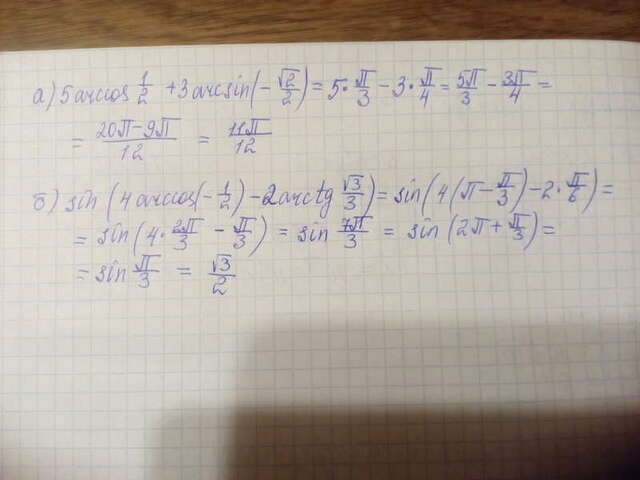 а) 5 arccos 1/2 + 3 arcsin(- √2/2) = 5 · π/3 - 3 · π/4 = 5π/3 - 3π/4 =
= 20π-9π/12 = 11π/12
б) sin (4 arccos(- 1/2) - 2 arctg √3/3) = sin(4(π - π/3) - 2 · π/6) =
= sin(4 · 2π/3 - π/3) = sin 7π/3 = sin (2π + π/3) =
= sin π/3 = √3/2